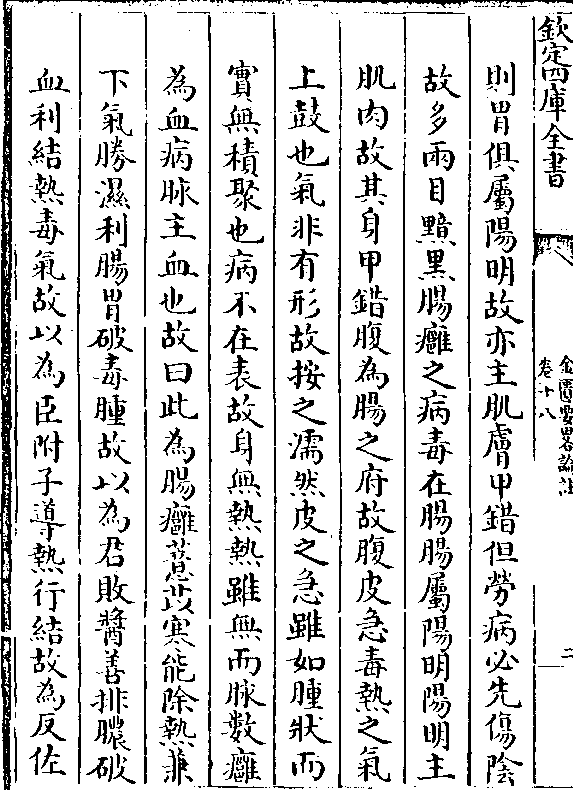 欽定四庫全書
金匱要畧論註
卷十八
二
則胃俱屬陽明故亦主肌膚甲錯但勞病必先傷陰
故多兩目黯黑腸癰之病毒在腸腸屬陽明陽明主
肌肉故其身甲錯腹為腸之府故腹皮急毒熱之氣
上鼓也氣非有形故按之濡然皮之急雖如腫狀而
實無積聚也病不在表故身無熱熱雖無而脉數癰
為血病脉主血也故曰此為腸癰薏苡寒能除熱兼
下氣勝濕利腸胃破毒腫故以為君敗醬善排膿破
血利結熱毒氣故以為臣附子導熱行結故為反佐